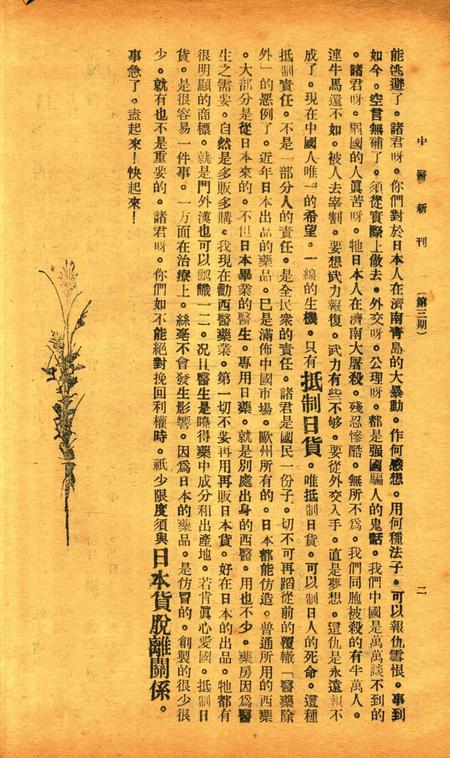 中醫新刊
（第三期）
二
能逃避了。諸君呀。你們對於日本人在濟南靑島的大暴動。作何感想。用何種法子。可以報仇雪恨。事到
如今。空言無補了。須從實際上做去。外交呀。公理呀。都是强國騙人的鬼話。我們中國是萬萬談不到的
。諸君呀。弱國的人眞苦呀。牠日本人在濟南大屠殺。殘忍慘酷。無所不爲。我們同胞被殺的有半萬人。
連牛馬還不如。被人去宰割。要想武力報復。武力有些不够。要從外交入手。直是夢想。這仇是永遠報不
成了。現在中國人唯一的希望。一線的生機。只有抵制日貨。唯抵制日貨。可以制日人的死命。這種
抵制責任。不是一部分人的責任。是全民衆的責任。諸君是國民一份子。切不可再蹈從前的覆轍「醫藥除
外」的惡例了。近年日本出品的藥品。已是滿佈中國市場。歐州所有的。日本都能仿造。普通所用的西藥
。大部分是從日本來的。不但日本畢業的醫生。專用日藥。就是別處出身的西醫。用也不少。藥房因爲醫
生之需要。自然是多販多購。我現在勸西醫藥業。第一切不要再用再販日本貨。好在日本的出品。牠都有
很明顯的商標。就是門外漢也可以認識一二。况且醫生是曉得藥中成分和出產地。若肯眞心愛國。抵制日
貨。是很容易一件事。一方面在治療上。絲毫不會發生影響。因爲日本的藥品。是仿冒的。創製的很少很
少。就有也不是重要的。諸君呀。你們如不能絕對挽回利權時。祇少限度須與日本貨脫離關係。
事急了。盍起來！快起來！